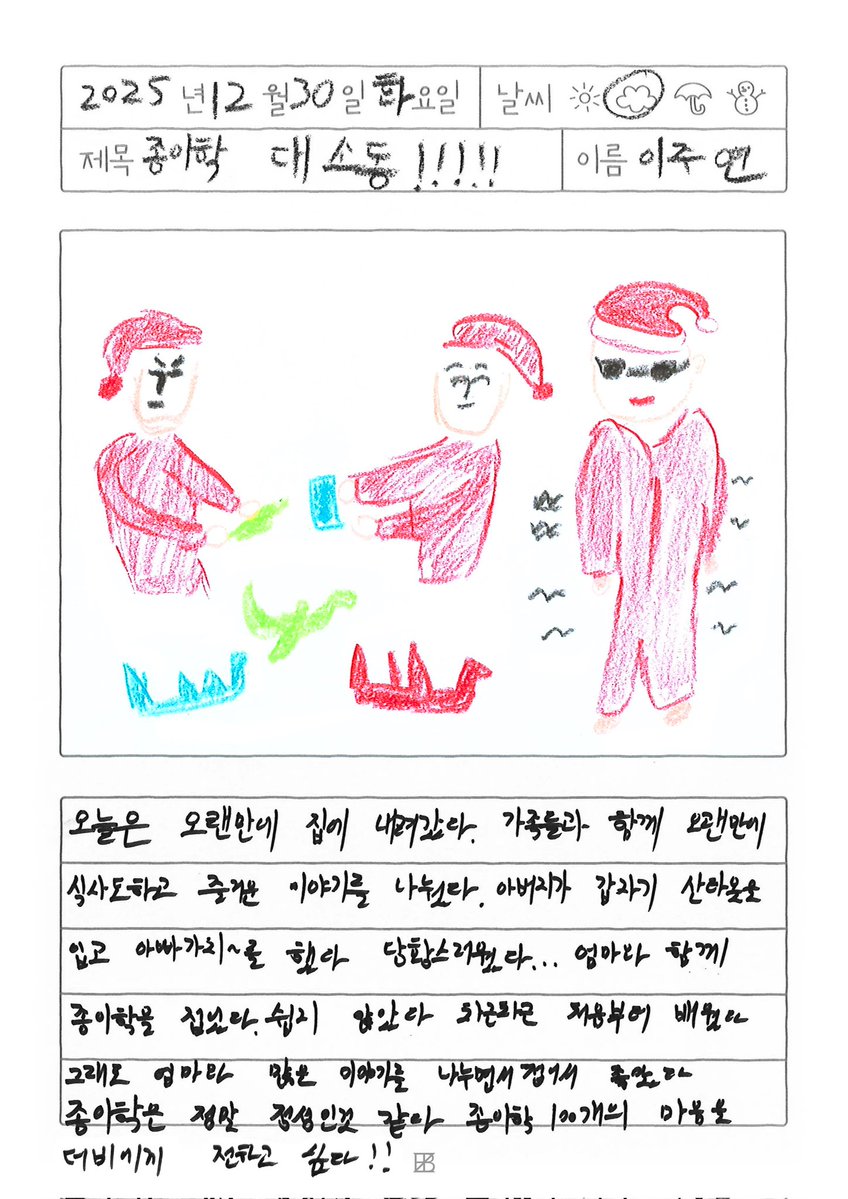 2025 년 12 월 30 일 화요일 날씨
제목 종이학 대소동!!!!! 이름 이주연
오늘은 오랜만에 집에 내려갔다. 가족들과 함께 오랜만에
식사도하고 즐거운 이야기를 나눴다. 아버지가 갑자기 산타옷을
입고 아빠가리~를 했다 당황스러웠다... 엄마와 함께
종이학을 접었다. 쉽지 않았다 차근차근 처음부터 배웠다
그래도 엄마와 많은 이야기를 나누면서 접어서 좋았다
종이학은 정말 정성인것 같아 종이학 100개의 마음을
더비에게 전하고 싶다!!